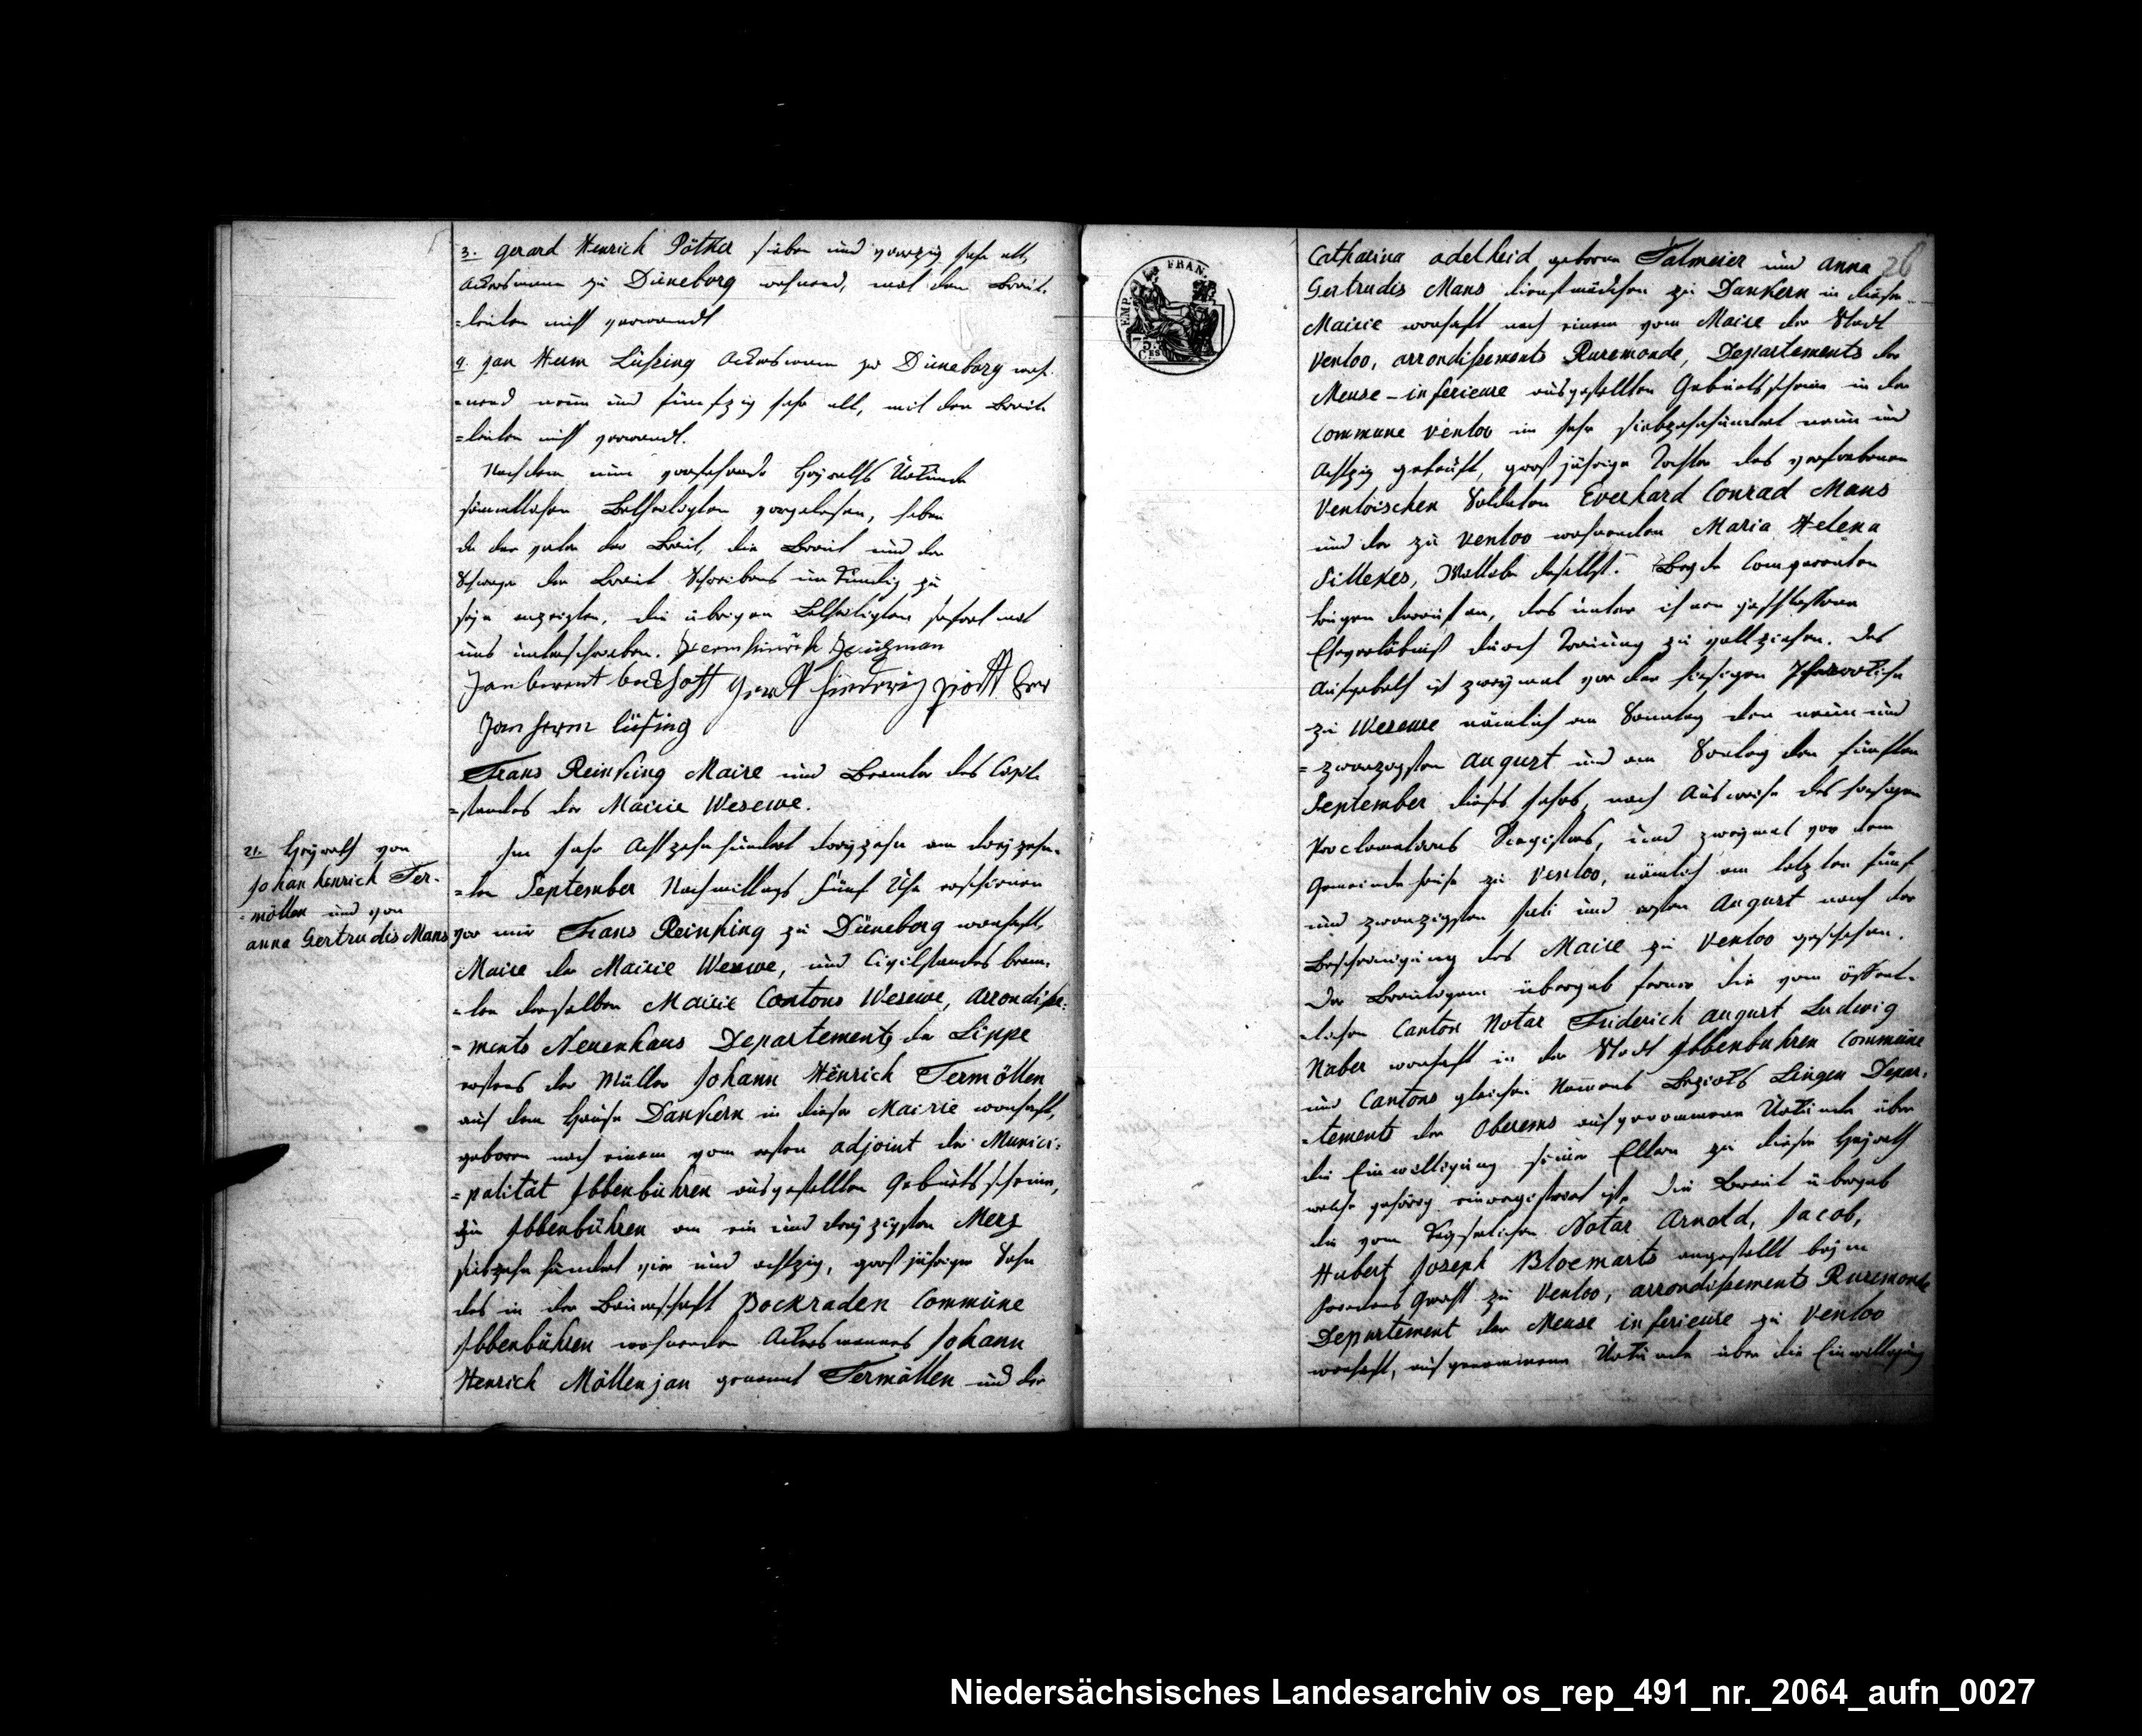 3. Gerard Henrich Pötker sieben und zwanzig Jahr alt,
Ackersmann zu Düneborg wohnend, mit den Braut-
=leuten nicht verwandt
4. Jan Herm Lüssing Ackersmann zu Düneborg woh-
=nend neun und fünfzig Jahr alt, mit den Braut
=leuten nicht verwandt.
Nachdem nun vorstehende Heyraths Urkunde
sämmtlichen Betheiligten vorgelesen, haben
der Vater der Braut, die Braut und der
Schwager der Braut Schreibens unkundig zu
seyn angezeigt, die übrigen Betheiligten sofort mit
uns unterschrieben. Hermhinrich
Jan berent
Jan herm lüsing
Frans Reinking Maire und Beamter des Civil-
=standes der Mairie Wesewe.
21. Heyrath von
Johan Henrich Ter-
=möllen und von
Anna Gertrudis Mans
Im Jahr Achtzehnhundert dreyzehn am dreyzehn-
=ten September Nachmittags fünf Uhr erschienen
vor mir Frans Reinking zu Düneborg wohnhaft,
Maire der Mairie Wesewe, und Civilstandes beam-
=ten derselben Mairie Cantons Wesewe, Arrondisse-
=ments Neuenhaus Departements der Lippe
erstens der Müller Johann Henrich Termöllen
auf dem Hause Dankern in dieser Mairie wohnhaft,
geboren nach einem vom ersten adjoint der Munici-
=palität Ibbenbühren ausgestellten Geburtsscheine,
zu Ibbenbühren am ein und dreyzigsten Merz
siebzehnhundert vier und achtzig, großjähriger Sohn
des in der Bauerschaft Bockraden Commüne
Ibbenbühren wohnenden Ackersmannes Johann
Henrich Möllenjan genannt Termöllen und der
26
EMP. FRAN.
75
CES
Catharina Adelheid geboren Talmeier und Anna
Gertrudis Mans dienstmädchen zu Dankern in dieser
Mairie wohnhaft nach einem vom Maire der Stadt
Venloo, arrondissements Ruremonde, Departements der
Meuse-inferieure ausgestellten Geburtsscheine in der
Commune Venloo im Jahr siebzehnhundert neun und
Achtzig getauft, großjährige Tochter des verstorbenen
Venloischen Soldaten Everhard Conrad Mans
und der zu Venloo wohnenden Maria Helena
Sillekes, Wittebe daselbst. Beyde Comparenten
trugen darauf an, das unter ihnen geschlossene
Eheverlöbniß durch Trauung zu vollziehen. Das
Aufgeboth ist zweymal vor der hiesigen
zu Wesewe nämlich am Sonntag den neun und
=zwanzigsten August und am Sontag den fünften
September dieses Jahrs, nach Ausweise des hiesigen
Proclamations Registers, und zweymal vor dem
Gemeinde hause zu Venloo, nämlich am letzten fünf
und zwanzigsten Juli und ersten August nach der
Bescheinigung des Maire zu Venloo geschehen.
Der Bräutigam übergab ferner die vom öffent-
=lichen Canton Notar Friderich August Ludwig
Naber wohnhaft in der Stadt Ibbenbuhren Commüne
und Cantons gleichen Namens Bezirks Lingen Depar-
=tements der Oberems aufgenommene Urkunde über
die Einwilligung seiner Eltern zu dieser Heyrath
welche gehörig einregistrirt ist. Die Braut übergab
die vom Kayserlichen Notar Arnold, Jacob,
Hubert Joseph Bloemarts angestellt beym
zu Venloo, arrondissements Ruremonde
Departement der Meuse inferieure zu Venloo
wohnhaft, aufgenommene Urkunde über die Einwilligung
Niedersächsisches Landesarchiv os_rep_491_nr._2064_aufn_0027